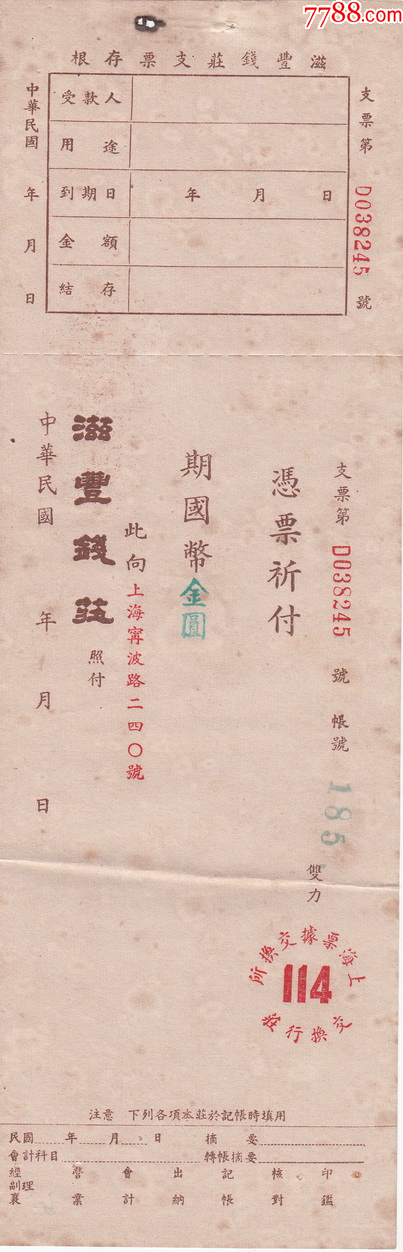 7788.com
滋豐錢莊支票存根
支票第 D038245 號
受款人
用途
到期日 年 月 日
金額
結存
中華民國 年 月 日
支票第 D038245 號 帳號 185
雙力
憑票祈付
期國幣金圓
此向
上海寧波路二四〇號
滋豐錢莊 照付
中華民國 年 月 日
上海票據交換所
114
交換行莊
注意 下列各項本莊於記帳時填用
民國 年 月 日 摘要
會計科目 轉帳摘要
經副襄理 營業 會計 出納 記帳 核對 印鑑